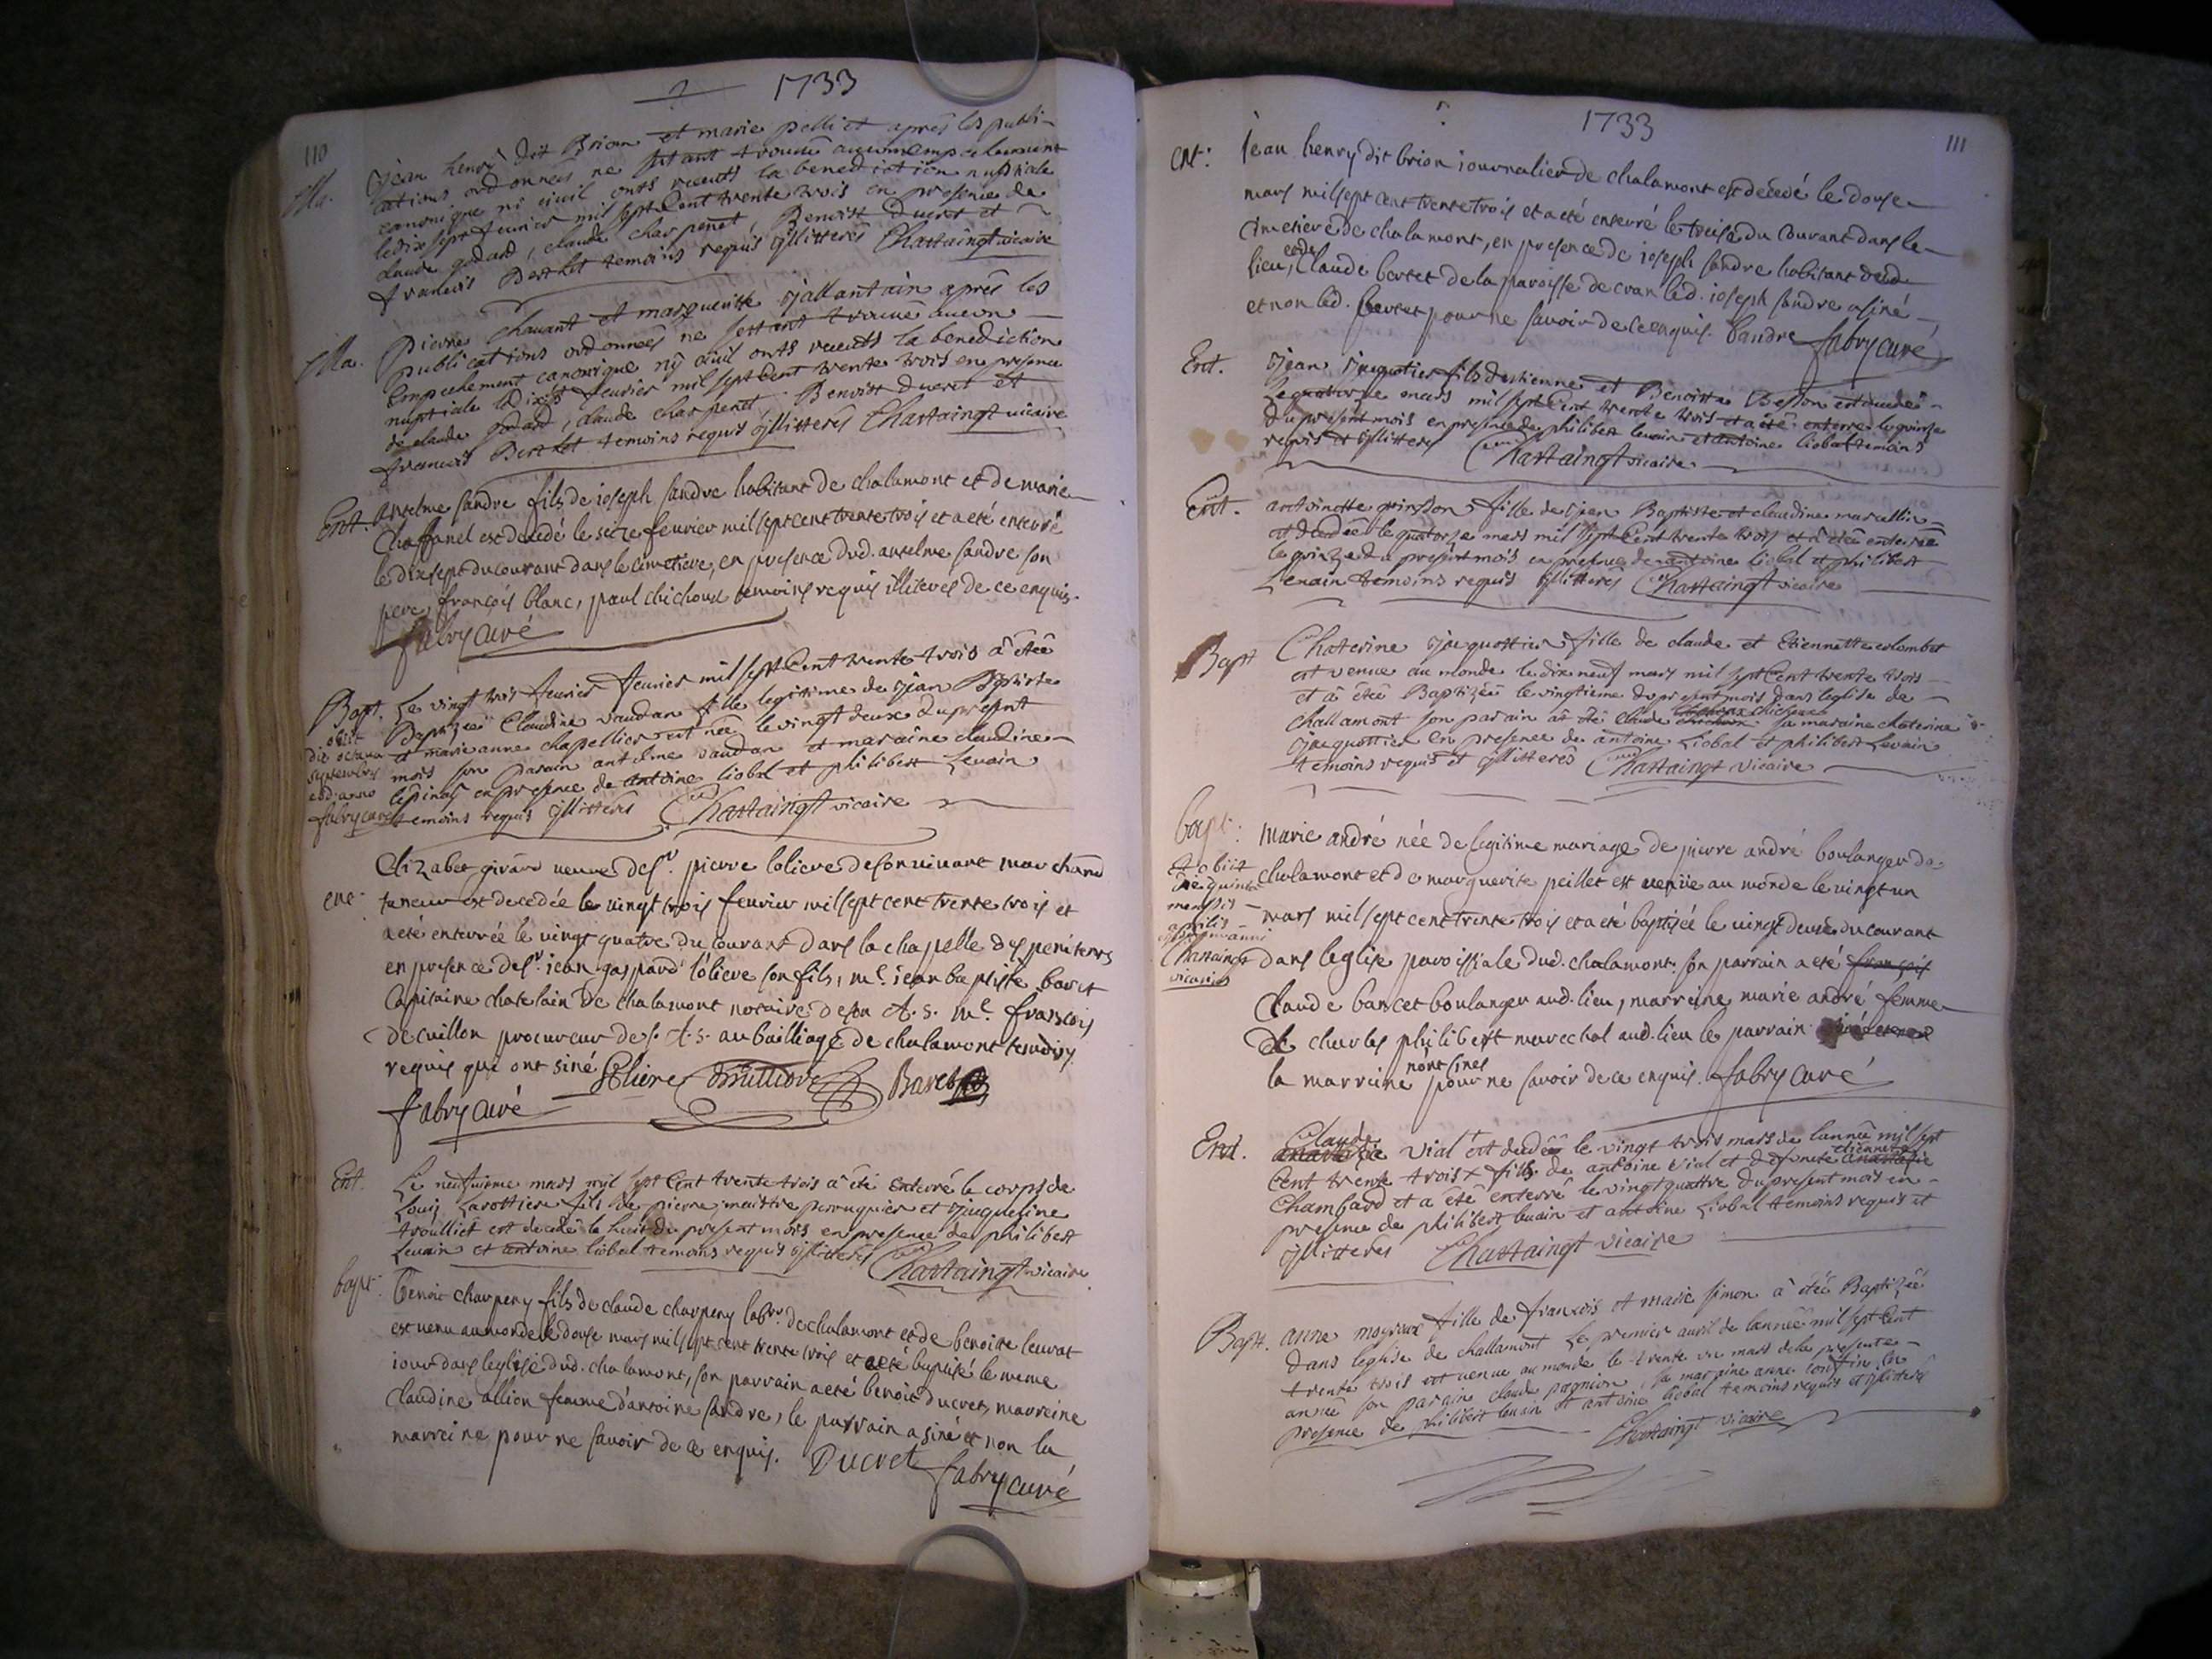 1733
110
Ma. Jean henry dit Brion et marie pelliet après les publi-
cations ordonnees ne sestant trouvé aucun empechement
canonique ni civil onts receuts la benediction nuptiale
le dix sept fevrier mil sept Cent trente trois en presence de
claude godard, claude charpenet, Benoist ducret et
francois Berthet temoins requis illitterés Chastaingt vicaire
Ma. Pierre chavant et margueritte après les
publications ordonnees ne sestant trouvé aucun
Empechement canonique ny civil onts receuts la benediction
nuptiale le dix sept fevrier mil sept Cent trente trois en presence
de claude godard, claude charpenet Benoist ducret et
francois Berthet temoins requis illitterés Chastaingt vicaire
Ent. anselme sandre fils de joseph sandre habitant de chalamont et de marie
Chaffanel est decedé le seize fevrier mil sept cent trente trois et a eté enterré
le dix sept du courant dans le cimetiere, en presence dud. anselme sandre son
pere, françois blanc, paul chichoud temoins requis illiteres de ce enquis.
fabry curé
Bapt. Le vingt trois fevrier fevrier mil sept Cent trente trois â étéé
Baptizéé Claudine vaudan fille legitime de Jean Baptiste
et marie anne chapellier est née le vingt deux du present
mois son parain antelme vaudan et maraine claudine
lepinay en presence de antoine liobal et philibert Levrain
temoins requis illitterés Chastaingt vicaire
obiit
die octava
septembris
eod. anno
fabry curé
ent. Elizabet girard veuve de Sr. pierre loliere de son vivant marchand
taneur est decedée le vingt trois fevrier mil sept cent trente trois et
a eté enterrée le vingt quatre du courant dans la chapelle des penitents
en presence de Sr. jean gaspard loliere son fils, me. jean baptiste baret
Capitaine chatelain de chalamont notaire de son A. S. me. françois
decuillon procureur de S. A. S. au bailliage de chalamont temoins
requis qui ont siné Loliere Baret
fabry curé
Ent. Le neufvieme mars mil sept Cent trente trois â été enterré le corps de
Louis Larottiere fils de pierre maistre perruquier et Jaqueline
troulliet est decedé le huit du present mois en presence de philibert
Levrain et antoine liobal temoins requis illitterés Chastaingt vicaire
bapt. benoit charpeny fils de claude charpeny labr. de chalamont et de benoitte leurat
est venu au monde le douse mars mil sept cent trente trois et a eté baptisé le meme
jour dans leglise dud. chalamont, son parrain a eté benoit ducret, marreine
claudine allion femme d'antoine sandre, le parrain a siné et non la
marreine pour ne savoir de ce enquis. Ducret
fabry curé
1733
111
ent: Jean henry dit brion journalier de chalamont est décedé le douse
mars mil sept cent trente trois et a eté enterré le treise du courant dans le
cimetiere de chalamont, en presence de joseph sandre habitant dud.
lieu, et de Claude bertet de la paroisse de cran led. joseph sandre a siné
et non led. bertet pour ne savoir de ce enquis. Sandre fabry curé
Ent. Jean Jacquotier fils destienne et Benoitte Besson est decedé
le quatorze mars mil sept Cent trente trois et a été enterré le quinze
du present mois en presence de philibert levrain et antoine liobal temoins
requis et illitteres Chastaingt vicaire
Ent. antoinette fille de Jean Baptiste et claudine marcellin
est decedéé le quatorze mars mil sept Cent trente trois et â étéé enterréé
le quinze du present mois en presence de antoine liobal et philibert
Levrain temoins requis illitterés Chastaingt vicaire
Bapt Chaterine Jacquottier fille de claude et Etiennette colombet
est venue au monde le dix neuf mars mil sept Cent trente trois
et â étéé Baptizéé le vingtieme du present mois dans leglise de
challamont son parain as été claude chichoux sa maraine chaterine
Jacquottier en presence de antoine Liobal et philibert Levrain
temoins requis et illitterés Chastaingt vicaire
bapt: marie andré née de legitime mariage de pierre andré boulanger de
chalamont et de marguerite peillet est venüe au monde le vingt un
mars mil sept cent trente trois et a eté baptisée le vingt deux du courant
dans leglise paroissiale dud. chalamont. son parrain a eté françois
claude bancet boulanger aud. lieu, marreine marie andré femme
de charles philibert marechal aud. lieu le parrain
la marreine n'ont sinés pour ne savoir de ce enquis. fabry curé
et obiit
die quinta
mensis
aprilis
Chastaingt
vicarius
Ent. Claude Vial est decedéé le vingt trois mars de lannéé mil sept
Cent trente trois fils de antoine Vial et defuncte etiennette
Chambard et a été enterré le vingt quattre du present mois en
presence de philibert levrain et antoine Liobal temoins requis et
illitterés Chastaingt vicaire
Bapt. anne fille de francois et marie simon â étéé Baptizéé
dans leglise de challamont Le premier avril de lannéé mil sept Cent
trente trois est venue au monde le trente un mars de la presente
annéé son parain claude pagnion, sa maraine anne en
presence de philibert levrain et antoine liobal temoins requis et illitterés
Chastaingt vicaire